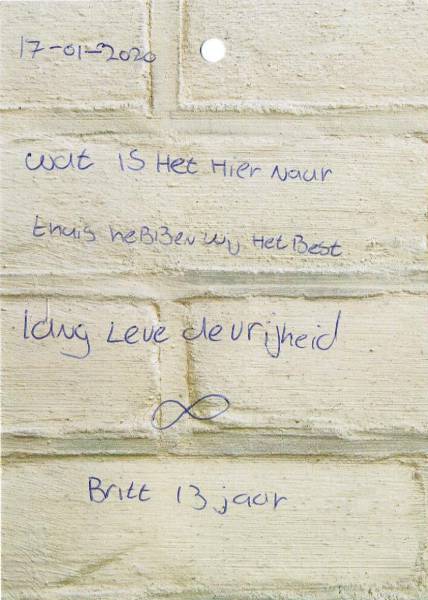 17-01-2020
wat is Het Hier Naar
thuis heBBen wij Het Best
lang Leve de vrijheid
∞
Britt 13 jaar